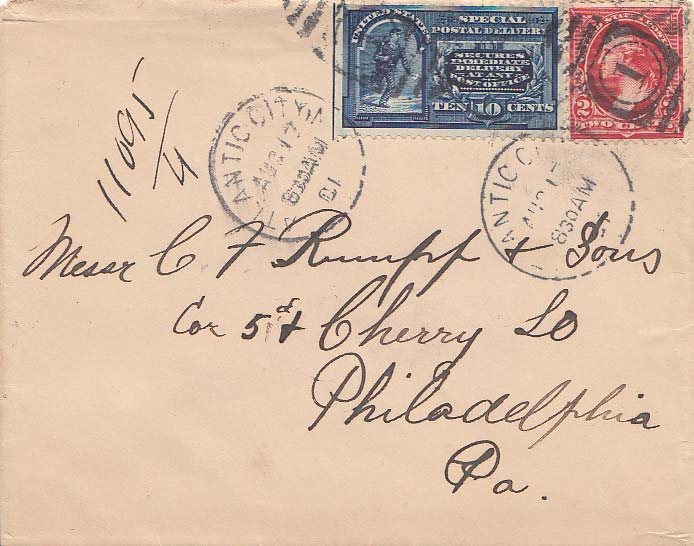 UNITED STATES
SPECIAL
POSTAL DELIVERY
SECURES
IMMEDIATE
DELIVERY
AT ANY
POST OFFICE
TEN 10 CENTS
2
TWO
11095
/4
ANTIC CITY
AUG 17
830AM
01
ANTIC CI
AUG 17
830AM
1
Messr C F Rumpp & Sons
Cor 5 & Cherry
Philadelphia
Pa.